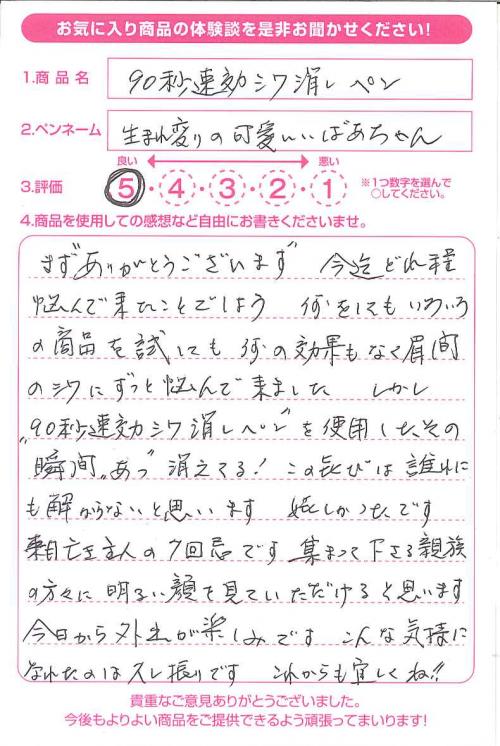 お気に入り商品の体験談を是非お聞かせください!
1.商品名 90秒速効シワ消しペン
2.ペンネーム 生まれ変りの可愛いいばあちゃん
良い 悪い
3.評価 5・4・3・2・1 ※1つ数字を選んで
○してください。
4.商品を使用しての感想など自由にお書きくださいませ。
まず"ありがとうございます" 今迄どれ程
悩んで来たことでしよう 何をしてもいろいろ
の商品を試しても何の効果もなく眉間
のシワにずっと悩んで来ました しかし
"90秒速効シワ消しペン"を使用したその
瞬間"あっ"消えてる! この喜びは誰れに
も解からないと思います 嬉しかったです
亡き主人の7回忌です 集まって下さる親族
の方々に明るい顔を見ていただけると思います
今日から外出が楽しみです こんな気持に
なれたのは久し振りです これからも宜しくね!!
貴重なご意見ありがとうございました。
今後もよりよい商品をご提供できるよう頑張ってまいります!